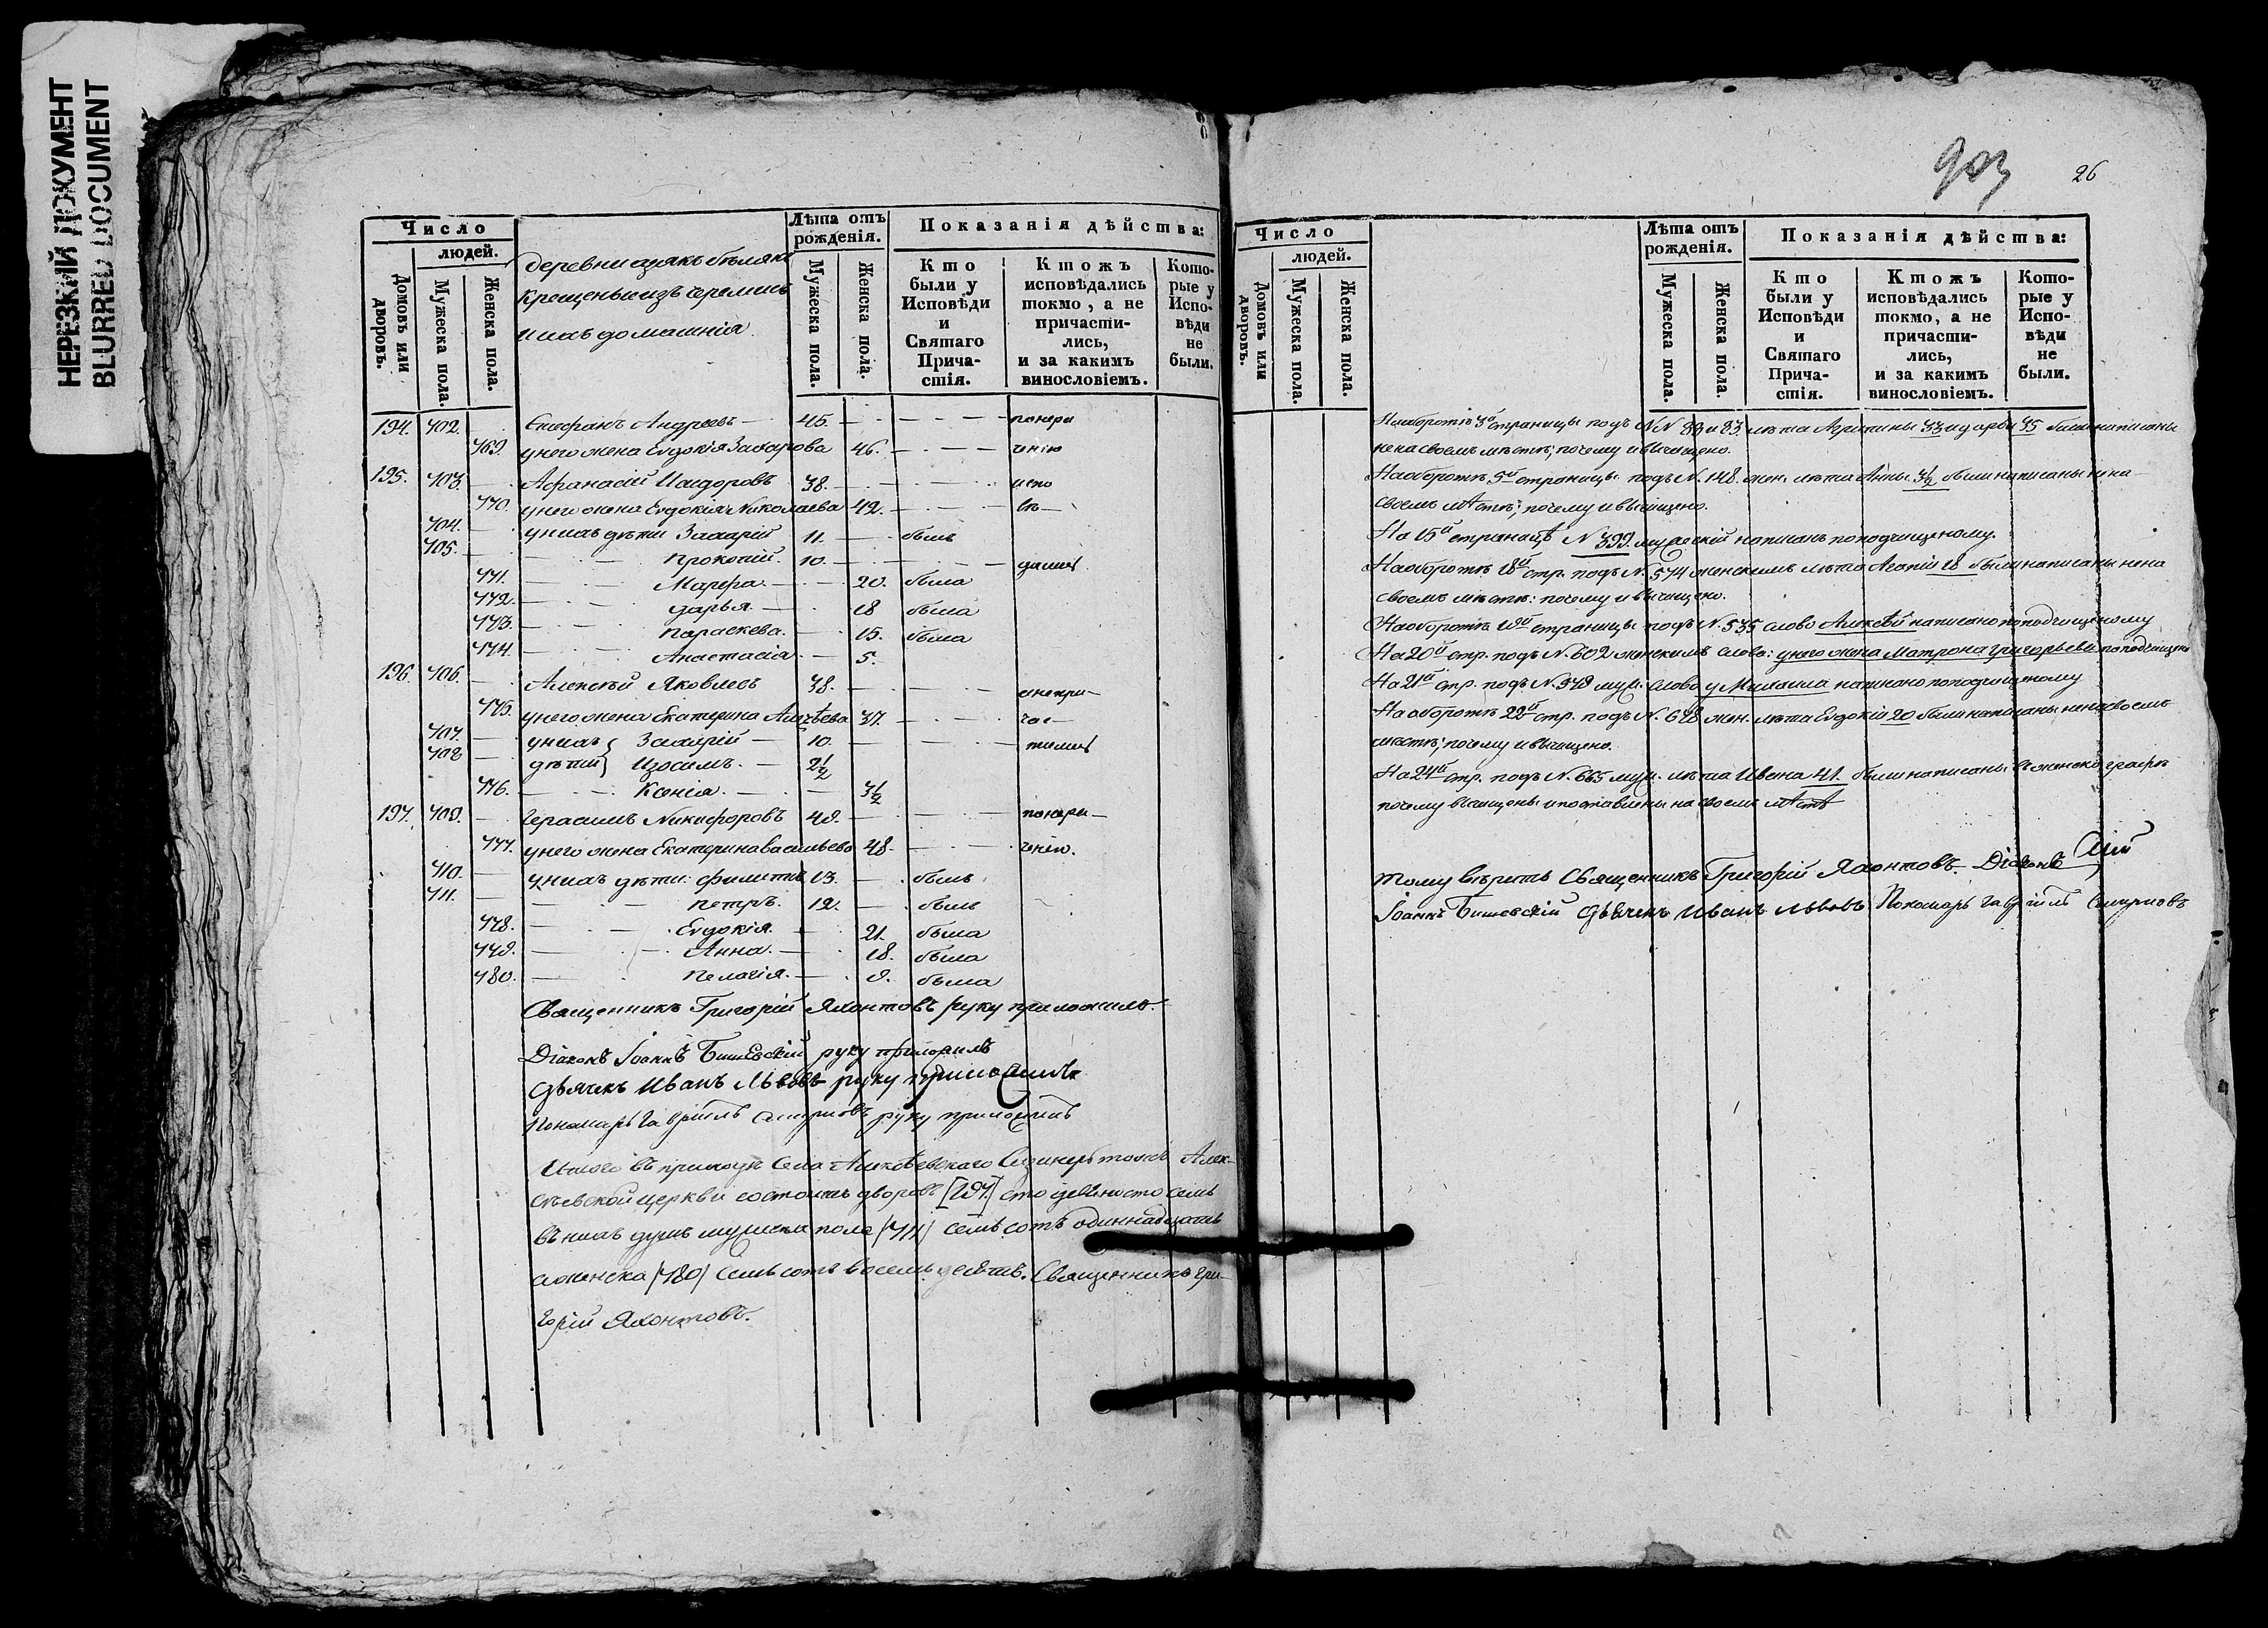 НЕРЕЗКИЙ ДОКУМЕНТ
BLURRED DOCUMENT
Число
людей.
Домовъ или дворовъ.
Мужеска пола.
Женска пола.
Лѣта отъ рожденія.
Мужеска пола.
Женска пола.
Показанія дѣйства:
Кто были у Исповѣди и Святаго Причастія.
Ктожъ исповѣдались токмо, а не причастились, и за какимъ винословіемъ.
Которые у Исповѣди не были.
крещеные изъ черемисъ
и ихъ домашнія
194. 702. Андреевъ — 45. — понера
769. у него жена Евдокія Захарова 46. — ченію
195. 703. Афанасій Исидоровъ 38. — испо
770. у него жена Евдокія Николаева 42. — вѣ—
704. у нихъ дѣти Захарій 11. — былъ
705. — Прокопій. 10. — дались
771. — Марфа. — 20. была
772. — Дарья. — 18 была
773. — Параскева. — 15. была
774. — Анастасія — 5.
196. 706. Алексѣй Яковлевъ 38. — инепри—
775. у него жена Екатерина Алексѣева 37. — час—
707. — у нихъ Захарій — 10. — тились
708 — дѣтии Изосимъ. — 2½
776. — Ксенія. — 3½
197. 709. — Герасимъ Никифоровъ 49. — понера—
777. у него жена Екатерина Васильева 48. — ченію.
710. — у нихъ дѣти: Филиппъ 13. — былъ
711. — Петръ. 12. — былъ
778. — Евдокія. — 21. была
779. — Анна. — 18. была
780. — Пелагія. — 9. была
Священникъ Григорій Яхонтовъ руку приложилъ.
Діаконъ Іоаннъ руку приложилъ
Дьячекъ Иванъ Львовъ руку приложилъ
Пономарь Гавріилъ Смирновъ руку приложилъ
Итого въ приходѣ села Алексѣевскаго тожъ Алек-
сѣевской церкви состоитъ дворовъ [197.] сто девяносто семь
въ нихъ душъ мужеска пола (711) семь сотъ одиннадцать
а женска (780) семь сотъ восемь десятъ. Священникъ Гри-
горій Яхонтовъ.
903
26
Число
людей.
Домовъ или дворовъ.
Мужеска пола.
Женска пола.
Лѣта отъ рожденія.
Мужеска пола.
Женска пола.
Показанія дѣйства:
Кто были у Исповѣди и Святаго Причастія.
Ктожъ исповѣдались токмо, а не причастились, и за какимъ винословіемъ.
Которые у Исповѣди не были.
На оборотѣ 3й страницы подъ NN 89 и 83. лѣта 33 и Дарьи 35 были написаны
не на своемъ мѣстѣ; почему и вычищено.
На оборотѣ 5й страницы подъ N. 148. жен. лѣта Анны 3½ были написаны не на
своемъ мѣстѣ; почему и вычищено.
На 15й страницѣ N 399. мужескій написанъ по подчищеному.
На оборотѣ 18й стр. подъ N. 574 женскимъ лѣта 18 были написаны не на
своемъ мѣстѣ: почему и вычищено.
На оборотѣ 19й страницы подъ N. 535 слово Алексѣй написано по подчищеному
На 20й стр. подъ N. 602 женскимъ слова: у него жена Матрона Григорьева по подчищено
На 21й стр. подъ N. 579 муж. слово у Михаила написано по подчищеному
На оборотѣ 22й стр. подъ N. 678 жен. лѣта Евдокіи 20 были написаны не на своемъ
мѣстѣ; почему и вычищено.
На 24й стр. подъ N. 665 муж. лѣта Ивана 41. были написаны въ женской графѣ
почему вычищены и поставлены на своемъ мѣстѣ
тому вѣрить Священникъ Григорій Яхонтовъ. Діаконъ
Іоаннъ Дьячекъ Иванъ Львовъ Пономарь Гавріилъ Смирновъ